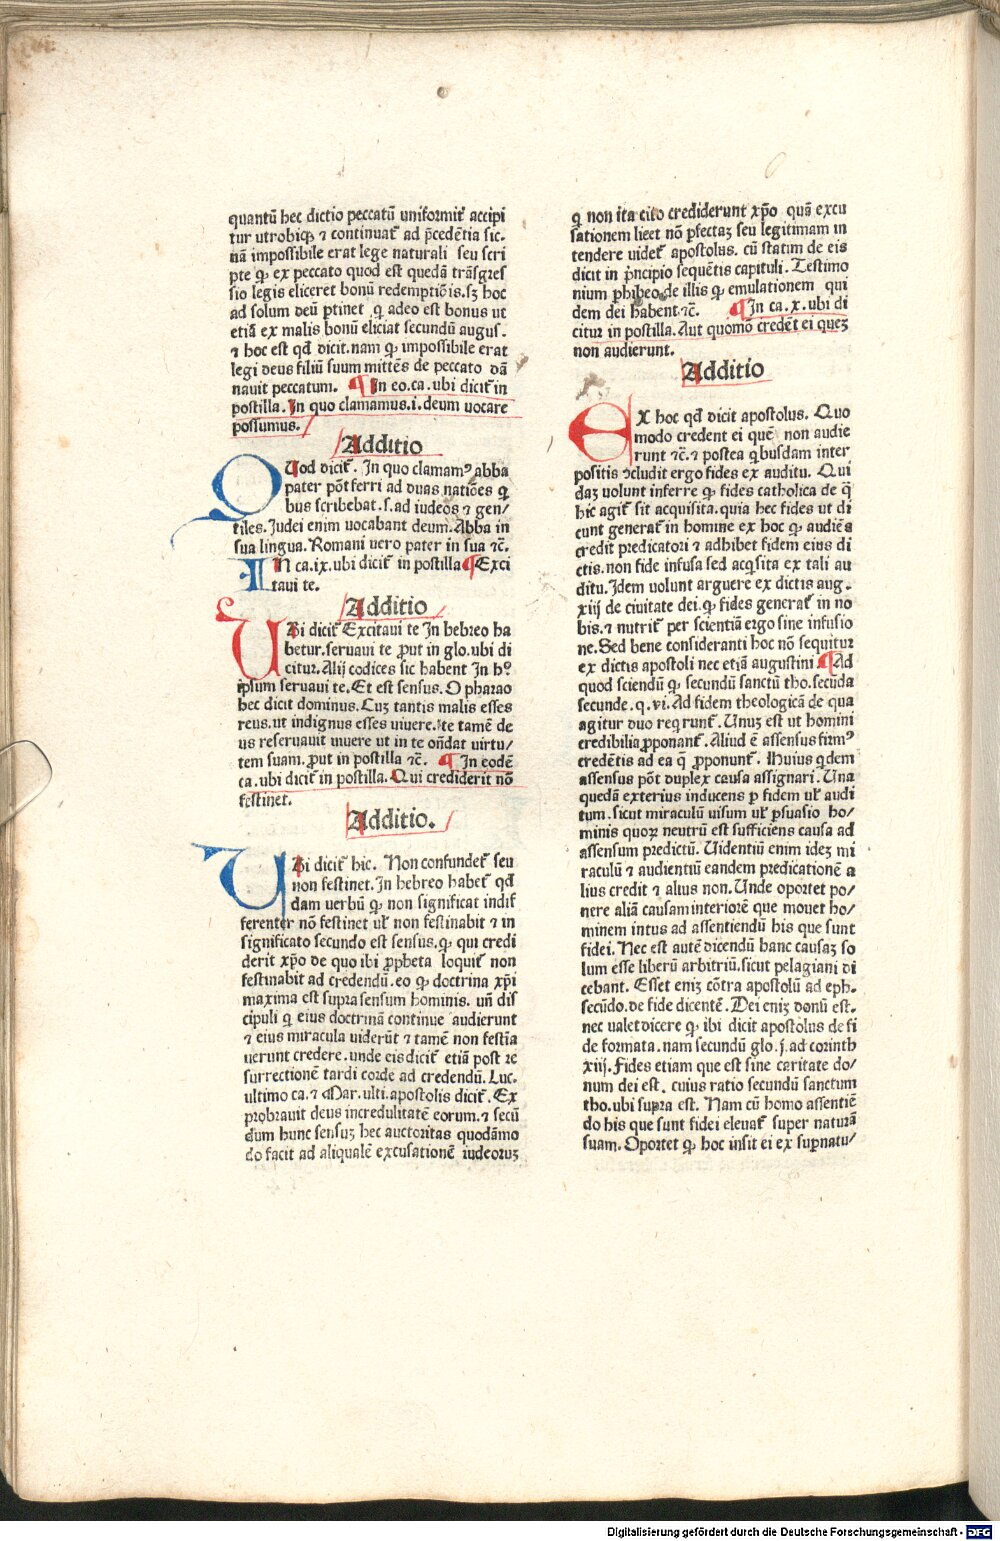 quantū hec dictio peccatū uniformit᷑ accipi
tur utrobiqꝫ ⁊ continuat᷑ ad p̄cedētia sic.
nā impossibile erat lege naturali seu scri
pte ꝙ ex peccato quod est quedā trāsgres
sio legis eliceret bonū redemptiōis.sꝫ hoc
ad solum deū ꝑtinet q̄ adeo est bonus ut
etiā ex malis bonū eliciat secundū augus.
⁊ hoc est qđ dicit.nam ꝙ impossibile erat
legi deus filiū suum mittēs de peccato dā
nauit peccatum. ¶ In eo.ca.ubi dicit᷑ in
postilla.In quo clamamus.i.deum uocare
possumus.
Additio
QUod dicit᷑. In quo clamamꝰ abba
pater pōt ferri ad duas natiōes q̄
bus scribebat.s.ad iudeos ⁊ gen/
tiles.Iudei enim uocabant deum.Abba in
sua lingua.Romani uero pater in sua ⁊c̄.
IN ca.ix.ubi dicit᷑ in postilla ¶Exci
taui te.
Additio
UBi dicit᷑ Excitaui te In hebreo ha
betur.seruaui te ꝓut in glo.ubi di
citur.Alij codices sic habent In hº
ipsum seruaui te.Et est sensus.O pharao
hec dicit dominus.Cuꝫ tantis malis esses
reus.ut indignus esses uiuere.te tamē de
us reseruauit uiuere ut in te ōndat uirtu/
tem suam.ꝓut in postilla ⁊c̄. ¶ In eodē
ca.ubi dicit᷑ in postilla.Qui crediderit nō
festinet.
Additio.
UBi dicit᷑ hic. Non confundet᷑ seu
non festinet.In hebreo habet᷑ qđ
dam uerbū ꝙ non significat indif
ferenter nō festinet ul᷑ non festinabit ⁊ in
significato secundo est sensus.ꝙ qui credi
derit xp̄o de quo ibi ꝓpheta loquit᷑ non
festinabit ad credendū.eo ꝙ doctrina xp̄i
maxima est supra sensum hominis. un̄ dis
cipuli q̄ eius doctrinā continue audierunt
⁊ eius miracula uiderūt ⁊ tamē non festīa
uerunt credere.unde eis dicit᷑ etiā post re
surrectionē tardi corde ad credendū.Luc.
ultimo ca.⁊ Mar.ulti.apostolis dicit᷑.Ex
probrauit deus incredulitatē eorum.⁊ secū
dum hunc sensuꝫ hec auctoritas quodāmo
do facit ad aliqualē excusationē iudeoruꝫ
q̄ non ita cito crediderunt xp̄o quā excu
sationem licet nō ꝑfectaꝫ seu legitimam in
tendere uidet᷑ apostolus. cū statim de eis
dicit in p̄ncipio sequētis capituli.Testimo
nium ꝑhibeo de illis ꝙ emulationem qui
dem dei habent ⁊c̄. ¶In ca.x.ubi di
citur in postilla.Aut quomō credēt ei queꝫ
non audierunt.
Additio
EX hoc qđ dicit apostolus. Quo
modo credent ei quē non audie
runt ⁊c̄.⁊ postea q̄busdam inter
positis ↄcludit ergo fides ex auditu. Qui
daꝫ uolunt inferre ꝙ fides catholica de q̄
hic agit᷑ sit acquisita.quia hec fides ut di
cunt generat᷑ in homine ex hoc ꝙ audiēs
credit predicatori ⁊ adhibet fidem eius di
ctis.non fide infusa sed acq̄sita ex tali au
ditu.Idem uolunt arguere ex dictis aug.
xiij de ciuitate dei.ꝙ fides generat᷑ in no
bis.⁊ nutrit᷑ per scientiā ergo sine infusio
ne.Sed bene consideranti hoc nō sequitur
ex dictis apostoli nec etiā augustini ¶Ad
quod sciendū ꝙ secundū sanctū tho.secūda
secunde.q.vi.Ad fidem theologicā de qua
agitur duo req̄runt᷑. Unuꝫ est ut homini
credibilia ꝓponant᷑. Aliud ē assensus firmꝰ
credētis ad ea q̄ ꝓponunt᷑. Huius q̄dem
assensus pōt duplex causa assignari. Una
quedā exterius inducens ꝑ fidem ul᷑ audi
tum.sicut miraculū uisum ul᷑ ꝑsuasio ho/
minis quorꝫ neutrū est sufficiens causa ad
assensum predictū. Uidentiū enim ideꝫ mi
raculū ⁊ audientiū eandem predicationē a
lius credit ⁊ alius non.Unde oportet po/
nere aliā causam interiorē que mouet ho/
minem intus ad assentiendū his que sunt
fidei. Nec est autē dicendū hanc causaꝫ so
lum esse liberū arbitriū.sicut pelagiani di
cebant. Esset eniꝫ cōtra apostolū ad eph.
secūdo.de fide dicentē. Dei eniꝫ donū est.
nec ualet dicere ꝙ ibi dicit apostolus de fi
de formata.nam secundū glo.j.ad corinth
xiij.Fides etiam que est sine caritate do/
num dei est. cuius ratio secundū sanctum
tho.ubi supra est. Nam cū homo assentiē
do his que sunt fidei eleuat᷑ super naturā
suam.Oportet ꝙ hoc insit ei ex suꝑnatu/
Digitalisierung gefördert durch die Deutsche Forschungsgemeinschaft - DFG